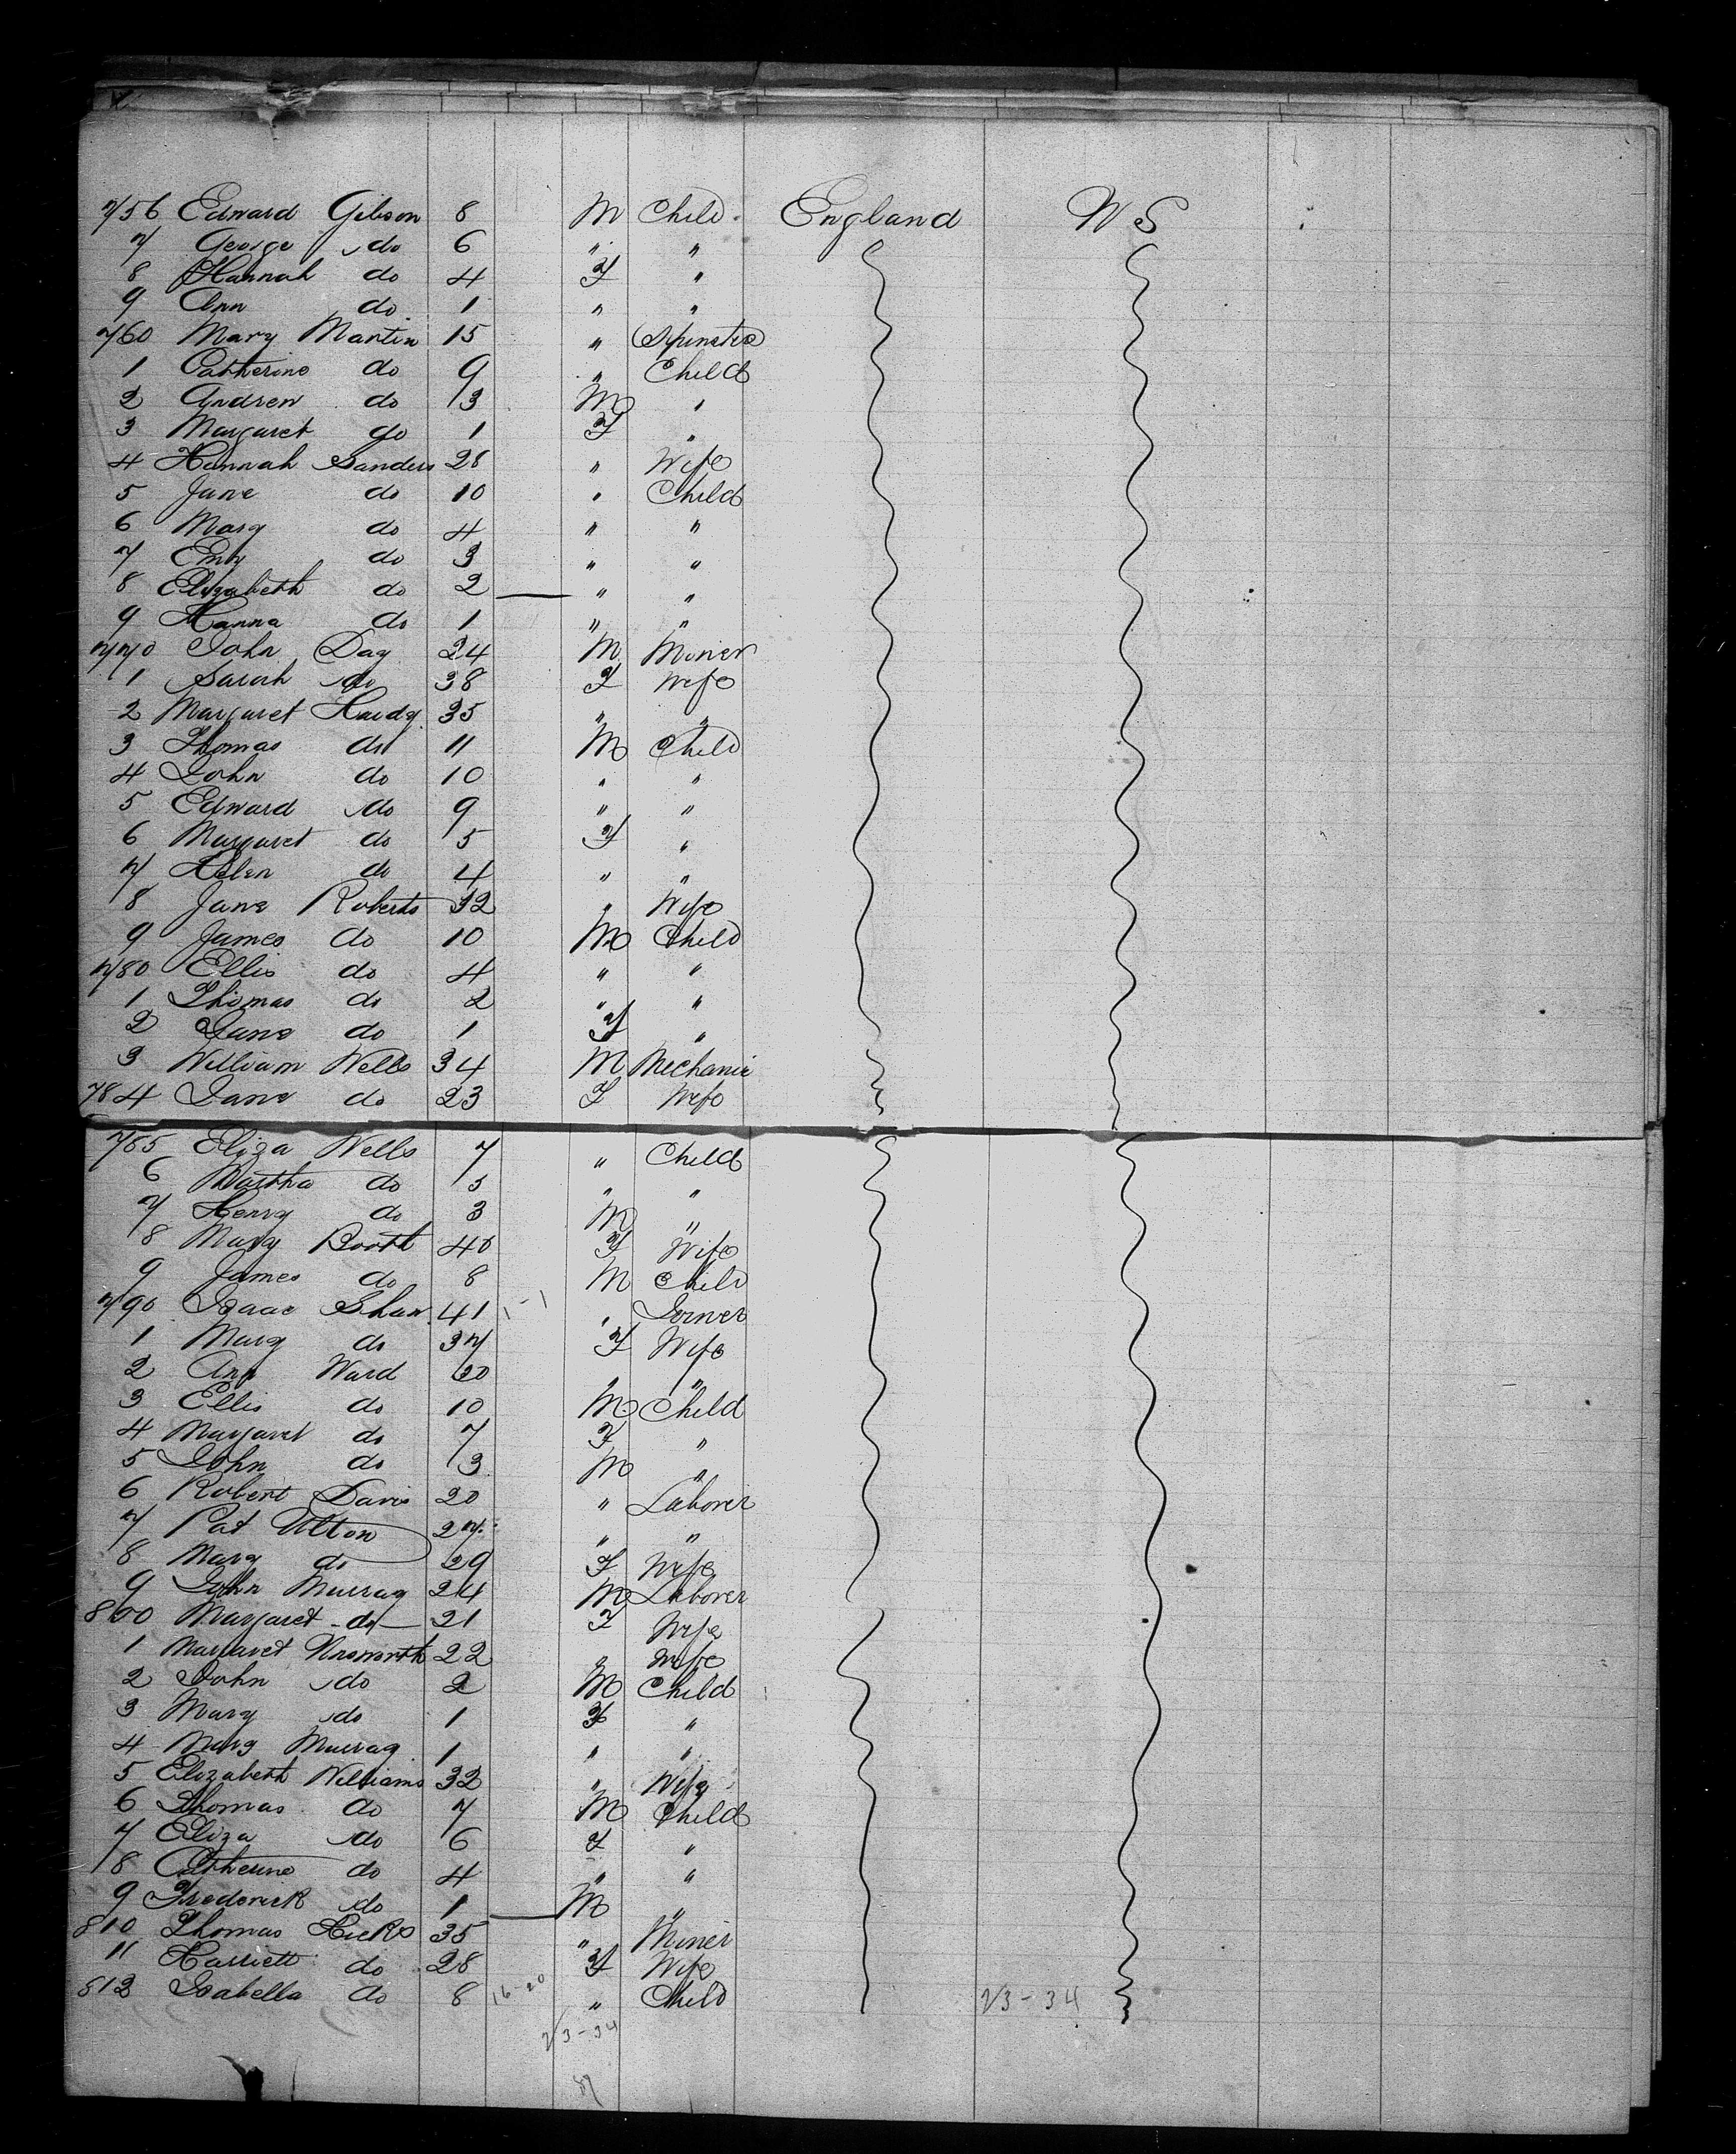 756 Edward Gibson 8 M Child England U S
7 George do 6 " "
8 Hannah do 4 F "
9 Ann do 1 " "
760 Mary Martin 15 " Spinster
1 Catherine do 9 " Child
2 Andrew do 3 M "
3 Margaret do 1 F "
4 Hannah Sanders 28 " Wife
5 Jane do 10 " Child
6 Mary do 4 " "
7 Emy do 3 " "
8 Elizabeth do 2 " "
9 Hanna do 1 " "
770 John Day 24 M Miner
1 Sarah do 38 F Wife
2 Margaret Hardy 35 " "
3 Thomas do 11 M Child
4 John do 10 " "
5 Edward do 9 " "
6 Margaret do 5 F "
7 Helen do 4 " "
8 Jane Roberts 32 " Wife
9 James do 10 M Child
780 Ellis do 4 " "
1 Thomas do 2 " "
2 Jane do 1 F "
3 William Wells 34 M Mechanic
784 Jane do 23 F Wife
785 Eliza Wells 7 " Child
6 Martha do 5 " "
7 Henry do 3 M "
8 Mary Booth 40 F Wife
9 James do 8 M Child
790 Isaac Shaw 41 1-1 " Joiner
1 Mary do 37 F Wife
2 Ann Ward 30 " "
3 Ellis do 10 M Child
4 Margaret do 7 F "
5 John do 3 M "
6 Robert Davis 20 " Laborer
7 Pat Ulton 27 " "
8 Mary do 29 F Wife
9 John Murray 24 M Laborer
800 Margaret do 21 F Wife
1 Margaret Unsworth 22 " Wife
2 John do 2 M Child
3 Mary do 1 F "
4 Mary Murray 1 " "
5 Elizabeth Williams 32 " Wife
6 Thomas do 7 M Child
7 Eliza do 6 F "
8 Catherine do 4 " "
9 Frederick do 1 M "
810 Thomas Hicks 35 " Miner
11 Harriett do 28 F Wife
812 Isabella do 8 16-20 " Child 23-34
23-34